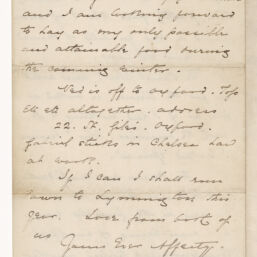 and I am looking forward
to hay as my only possible
and attainable food during
the coming winter.
Ned is off to Oxford. Top
etc etc altogether. address
22. St. Giles. Oxford.
Gabriel sticks in Chelsea hard
at work.
If I can I shall run
down to Lymington this
year. Love from both of
us
Yours Ever Affectly.